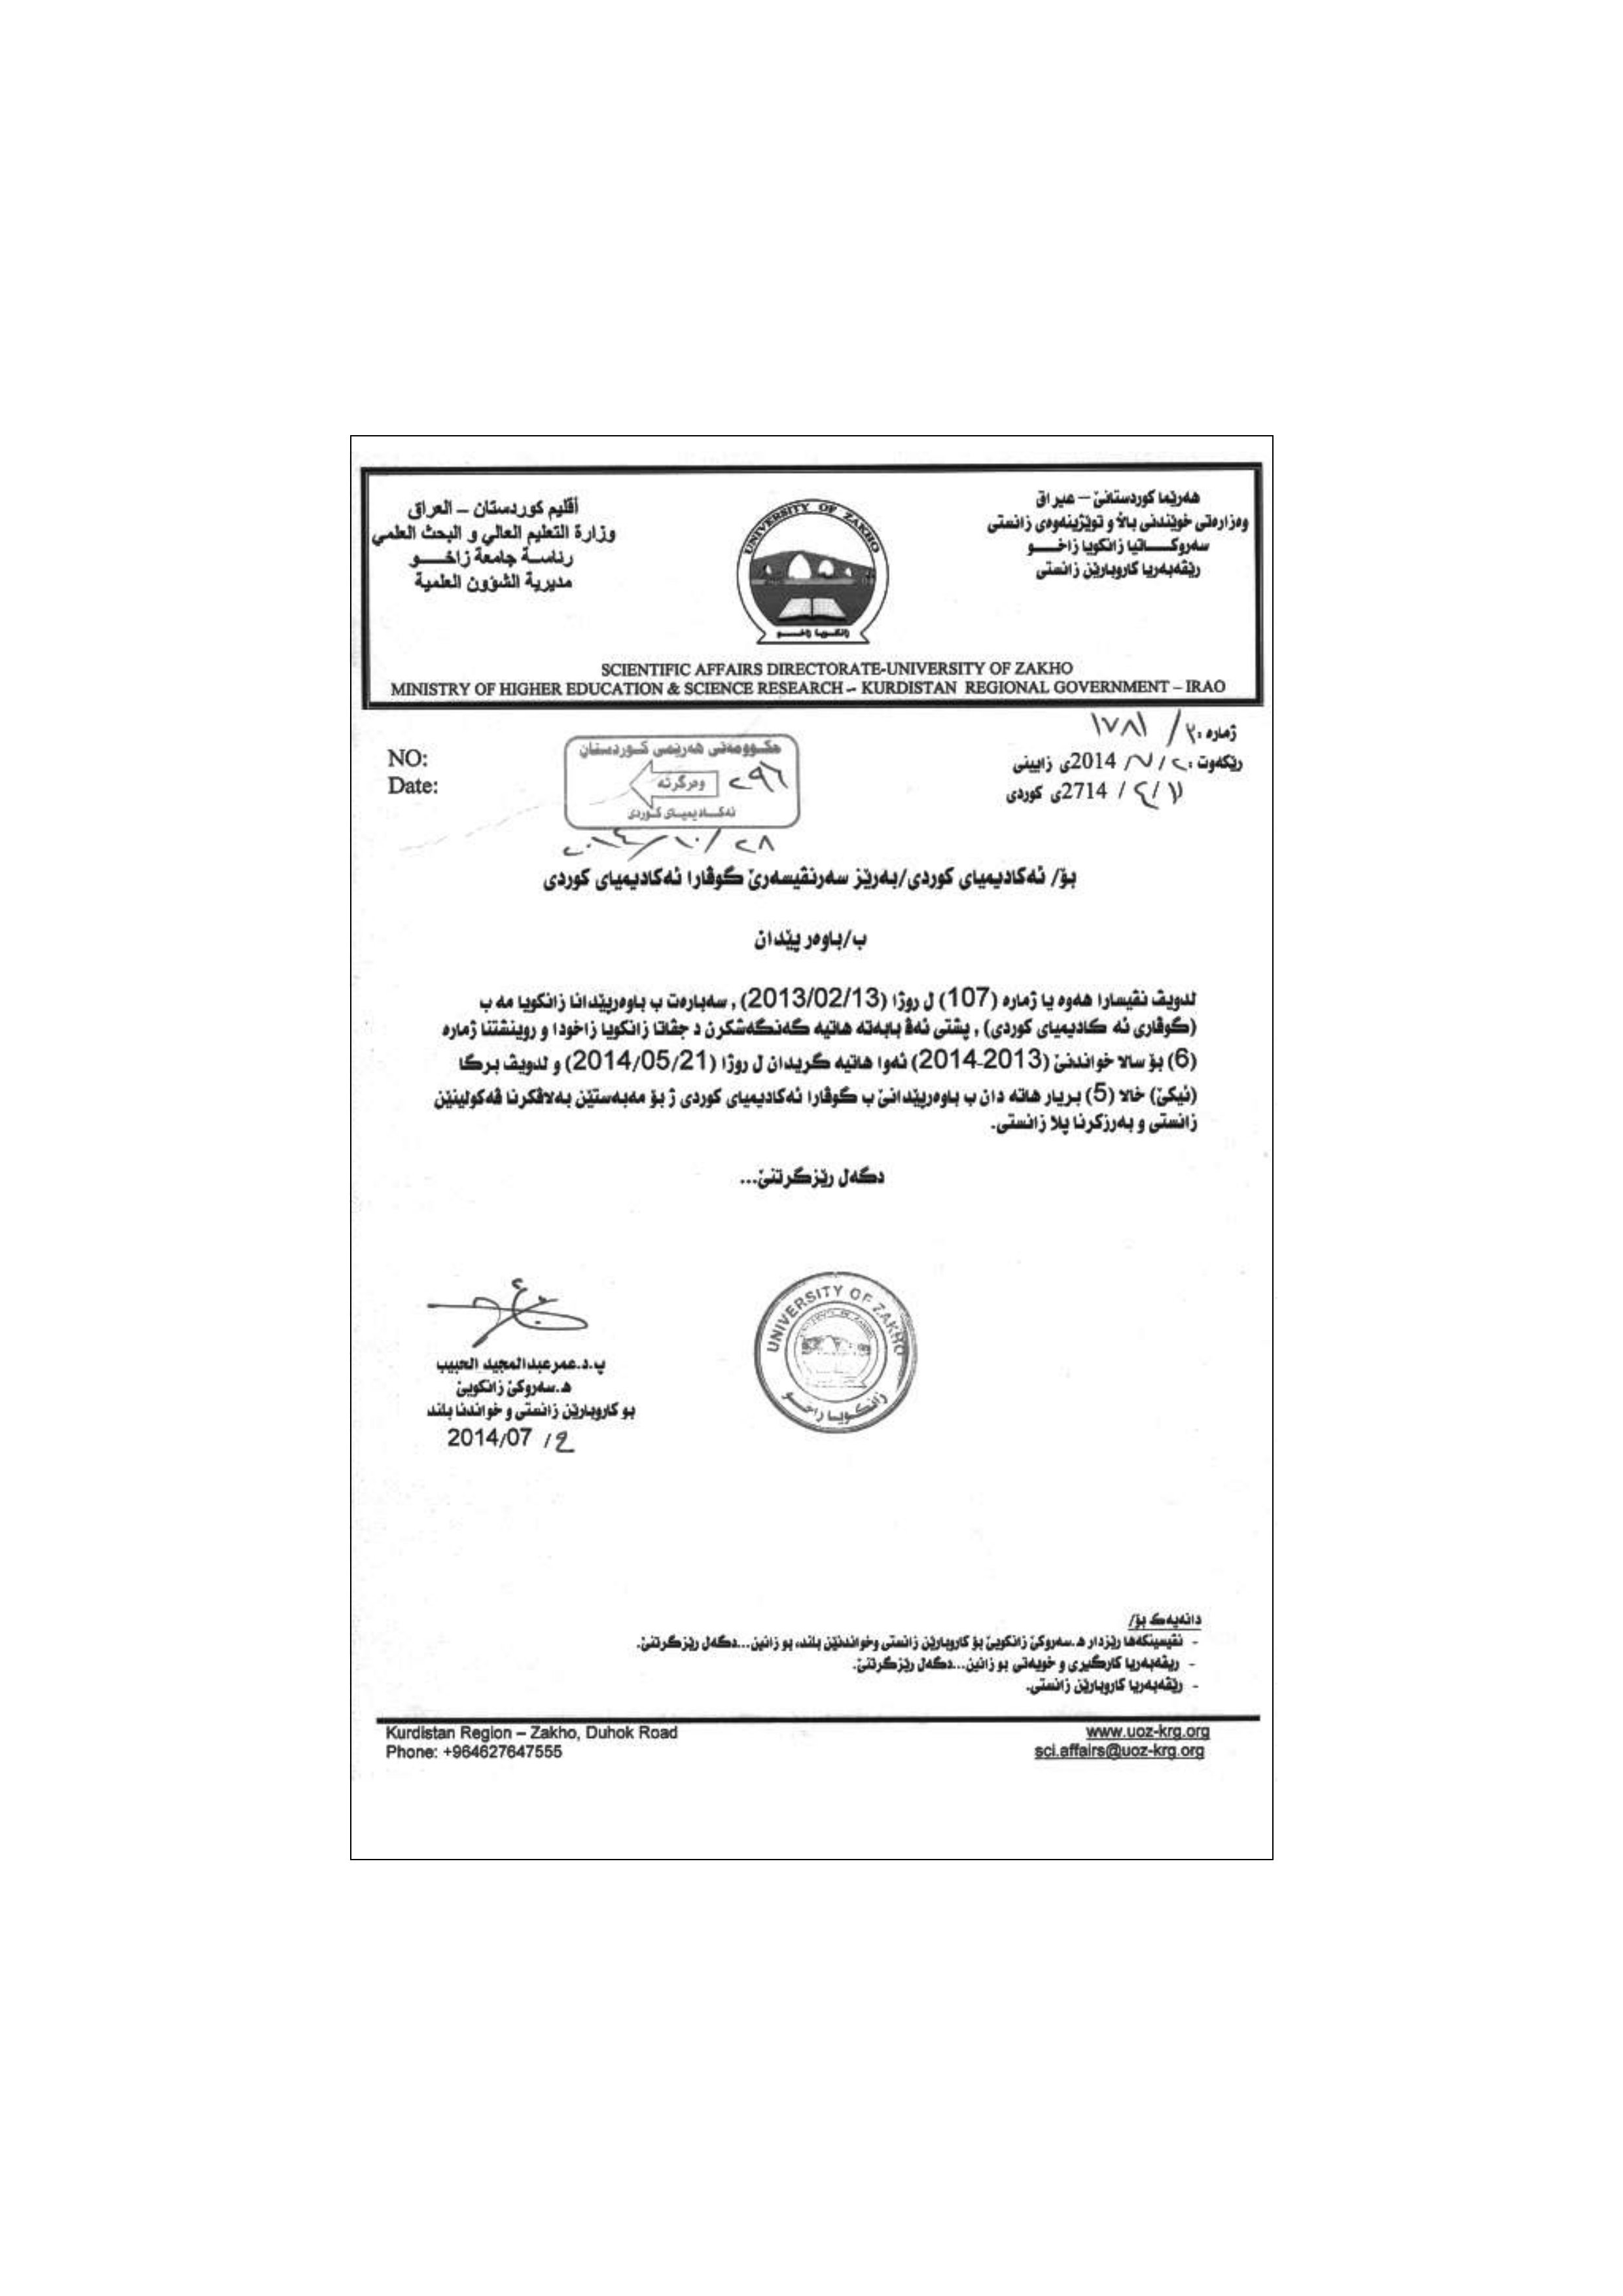 هەرێما كوردستانێ – عیراق
وەزارەتی خوێندنی باڵا و توێژینەوەی زانستی
سەروكـــاتیا زانكویا زاخـــو
رێڤەبەریا كاروبارێن زانستی
أقليم كوردستان – العراق
وزارة التعليم العالي و البحث العلمي
رئاسـة جامعة زاخـــو
مديرية الشؤون العلمية
UNIVERSITY OF ZAKHO
زانكویا زاخـــو
SCIENTIFIC AFFAIRS DIRECTORATE-UNIVERSITY OF ZAKHO
MINISTRY OF HIGHER EDUCATION & SCIENCE RESEARCH – KURDISTAN REGIONAL GOVERNMENT – IRAQ
ژمارە :٢/ ١٧٨١
رێكەوت :٢ / ٧/ 2014ی زایینی
١١ / ٤ / 2714ی كوردی
NO:
Date:
حكـوومەتی هەرێمی كـوردستان
وەرگرتە ٢٩٦
ئەكـادیمیـای كـوردی
٢٠١٤/١٠/٢٨
بۆ/ ئەكادیمیای كوردی/بەرێز سەرنڤیسەرێ گوڤارا ئەكادیمیای كوردی
ب/باوەر پێدان
لدویڤ نڤیسارا هەوە یا ژمارە (107) ل روژا (2013/02/13) , سەبارەت ب باوەرپێدانا زانكویا مە ب
(گوڤاری ئە كادیمیای كوردی) , پشتی ئەڤ بابەتە هاتیە گەنگەشكرن د جڤاتا زانكویا زاخودا و روینشتنا ژمارە
(6) بۆ سالا خواندنێ (2013-2014) ئەوا هاتیە گریدان ل روژا (2014/05/21) و لدویڤ برگا
(ئیكێ) خالا (5) بریار هاتە دان ب باوەرپێدانێ ب گوڤارا ئەكادیمیای كوردی ژ بۆ مەبەستێن بەلاڤكرنا ڤەكولینێن
زانستی و بەرزكرنا پلا زانستی.
دگەل رێزگرتنێ...
UNIVERSITY OF ZAKHO
زانكـویـا زاخـــو
پ.د.عمرعبدالمجید الحبیب
هـ.سەروكێ زانكویێ
بو كاروبارێن زانستی و خواندنا بلند
2014/07 /2
دانەیەك بۆ/
- نڤیسینگەها رێزدار هـ.سەروكێ زانكویێ بۆ كاروبارێن زانستی وخواندنێن بلند، بو زانین...دگەل رێزگرتنێ.
- ریڤەبەریا كارگیری و خویەتی بو زانین...دگەل رێزگرتنێ.
- رێڤەبەریا كاروبارێن زانستی.
Kurdistan Region – Zakho, Duhok Road
Phone: +964627647555
www.uoz-krg.org
sci.affairs@uoz-krg.org